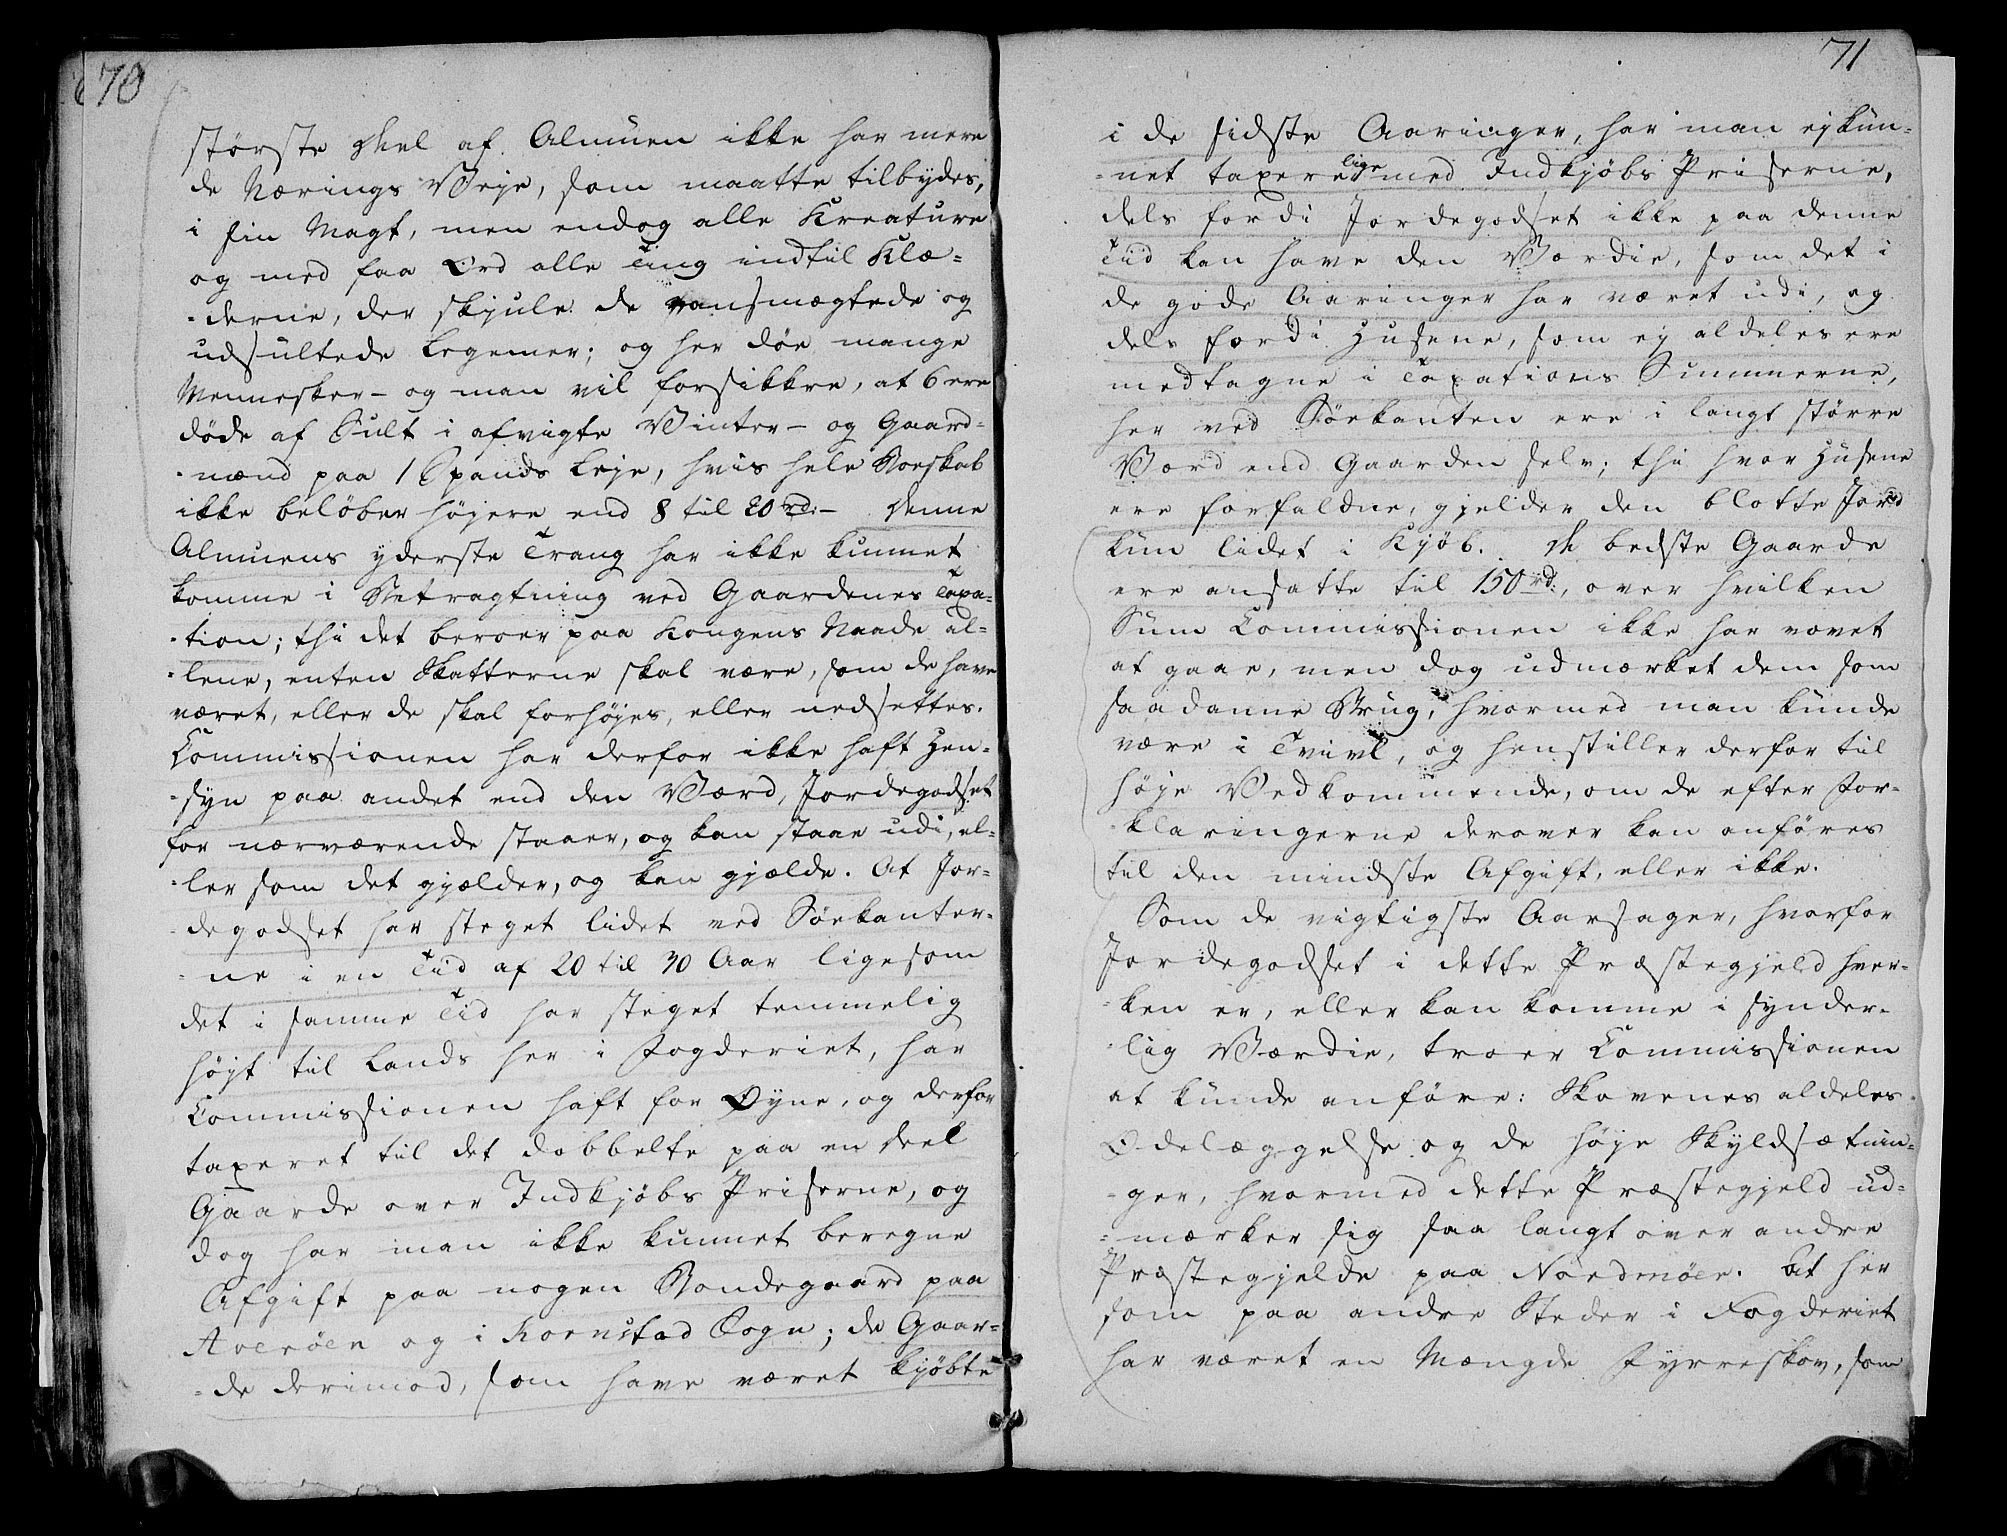 70
største Deel af Almuen ikke har mere
de Nærings Veije, som maatte tilbydes,
i sin Magt, men endog alle Kreature
og med faa Ord alle Ting indtil Klæ-
-derne, der skjule de vansmægtede og
udsultede Legemer; og her døe mange
Mennesker - og man vil forsikkre, at 6 ere
døde af Sult i afvigte Vinter - og Gaard-
-mænd paa 1 Spands Leje, hvis hele Boeskab
ikke beløber højere end 8 til 20 rd:- Denne
Almuens yderste Trang har ikke kunnet
komme i Betragtning ved Gaardenes Taxa-
-tion; thi det beroer paa Kongens Naade al-
-lene, enten Skatterne skal være, som de have
været, eller de skal forhøjes, eller nedsettes.
Commissionen har derfor ikke haft Hen-
-syn paa andet end den Værd, Jordegodset
for nærværende staaer, og kan staae udi, el-
-ler som det gjælder, og kan gjælde. At Jor-
-degodset har steget lidet ved Söekanter-
-ne i en Tiid af 20 til 30 Aar ligesom
det i samme Tid har steget temmelig
højt til Lands her i Fogderiet, har
Commissionen haft for Øyne, og derfor
taxeret til det dobbelte paa en Deel
Gaarde over Indkjøbs Priserne, og
dog har man ikke kunnet beregne
Afgift paa nogen Bondegaard paa
Averöen og i Kornstad Sogn; de Gaar-
-de derimod, som have været kjøbte
71
i de sidste Aaringer, har man ej kun-
-net taxere lige med Indkjøbs Priserne,
dels fordi Jordegodset ikke paa denne
Tiid kan have den Værdie, som det i
de gode Aaringer har været udi, og
dels fordi Husene, som ej aldeles ere
medtagne i Taxations Summerne,
her ved Söekanten ere i langt större
Værd end Gaarden selv; thi hvor Husene
ere forfaldne, gjelder den blotte Jord
kun lidet i Kjöb. De bedste Gaarde
ere ansatte til 150 rd:, over hvilken
Sum Commissionen ikke har vovet
at gaae, men dog udmærket dem som
saadanne Brug, hvormed man kunde
være i Tvivl, og henstiller derfor til
höje Vedkommende, om de efter For-
-klaringerne derover kan anföres
til den mindste Afgift, eller ikke.
Som de vigtigste Aarsager, hvorfor
Jordegodset i dette Præstegjeld hver-
-ken er, eller kan komme i synder-
-lig Værdie, troer Commissionen
at kunde anföre: Skovenes aldeles
Ødelæggelse og de høje Skyldsætnin-
-ger, hvormed dette Præstegjeld ud-
-mærker sig saa langt over andre
Præstegjelde paa Nordmöer. At her
som paa andre Steder i Fogderiet
har været en Mængde Fyrreskov, som